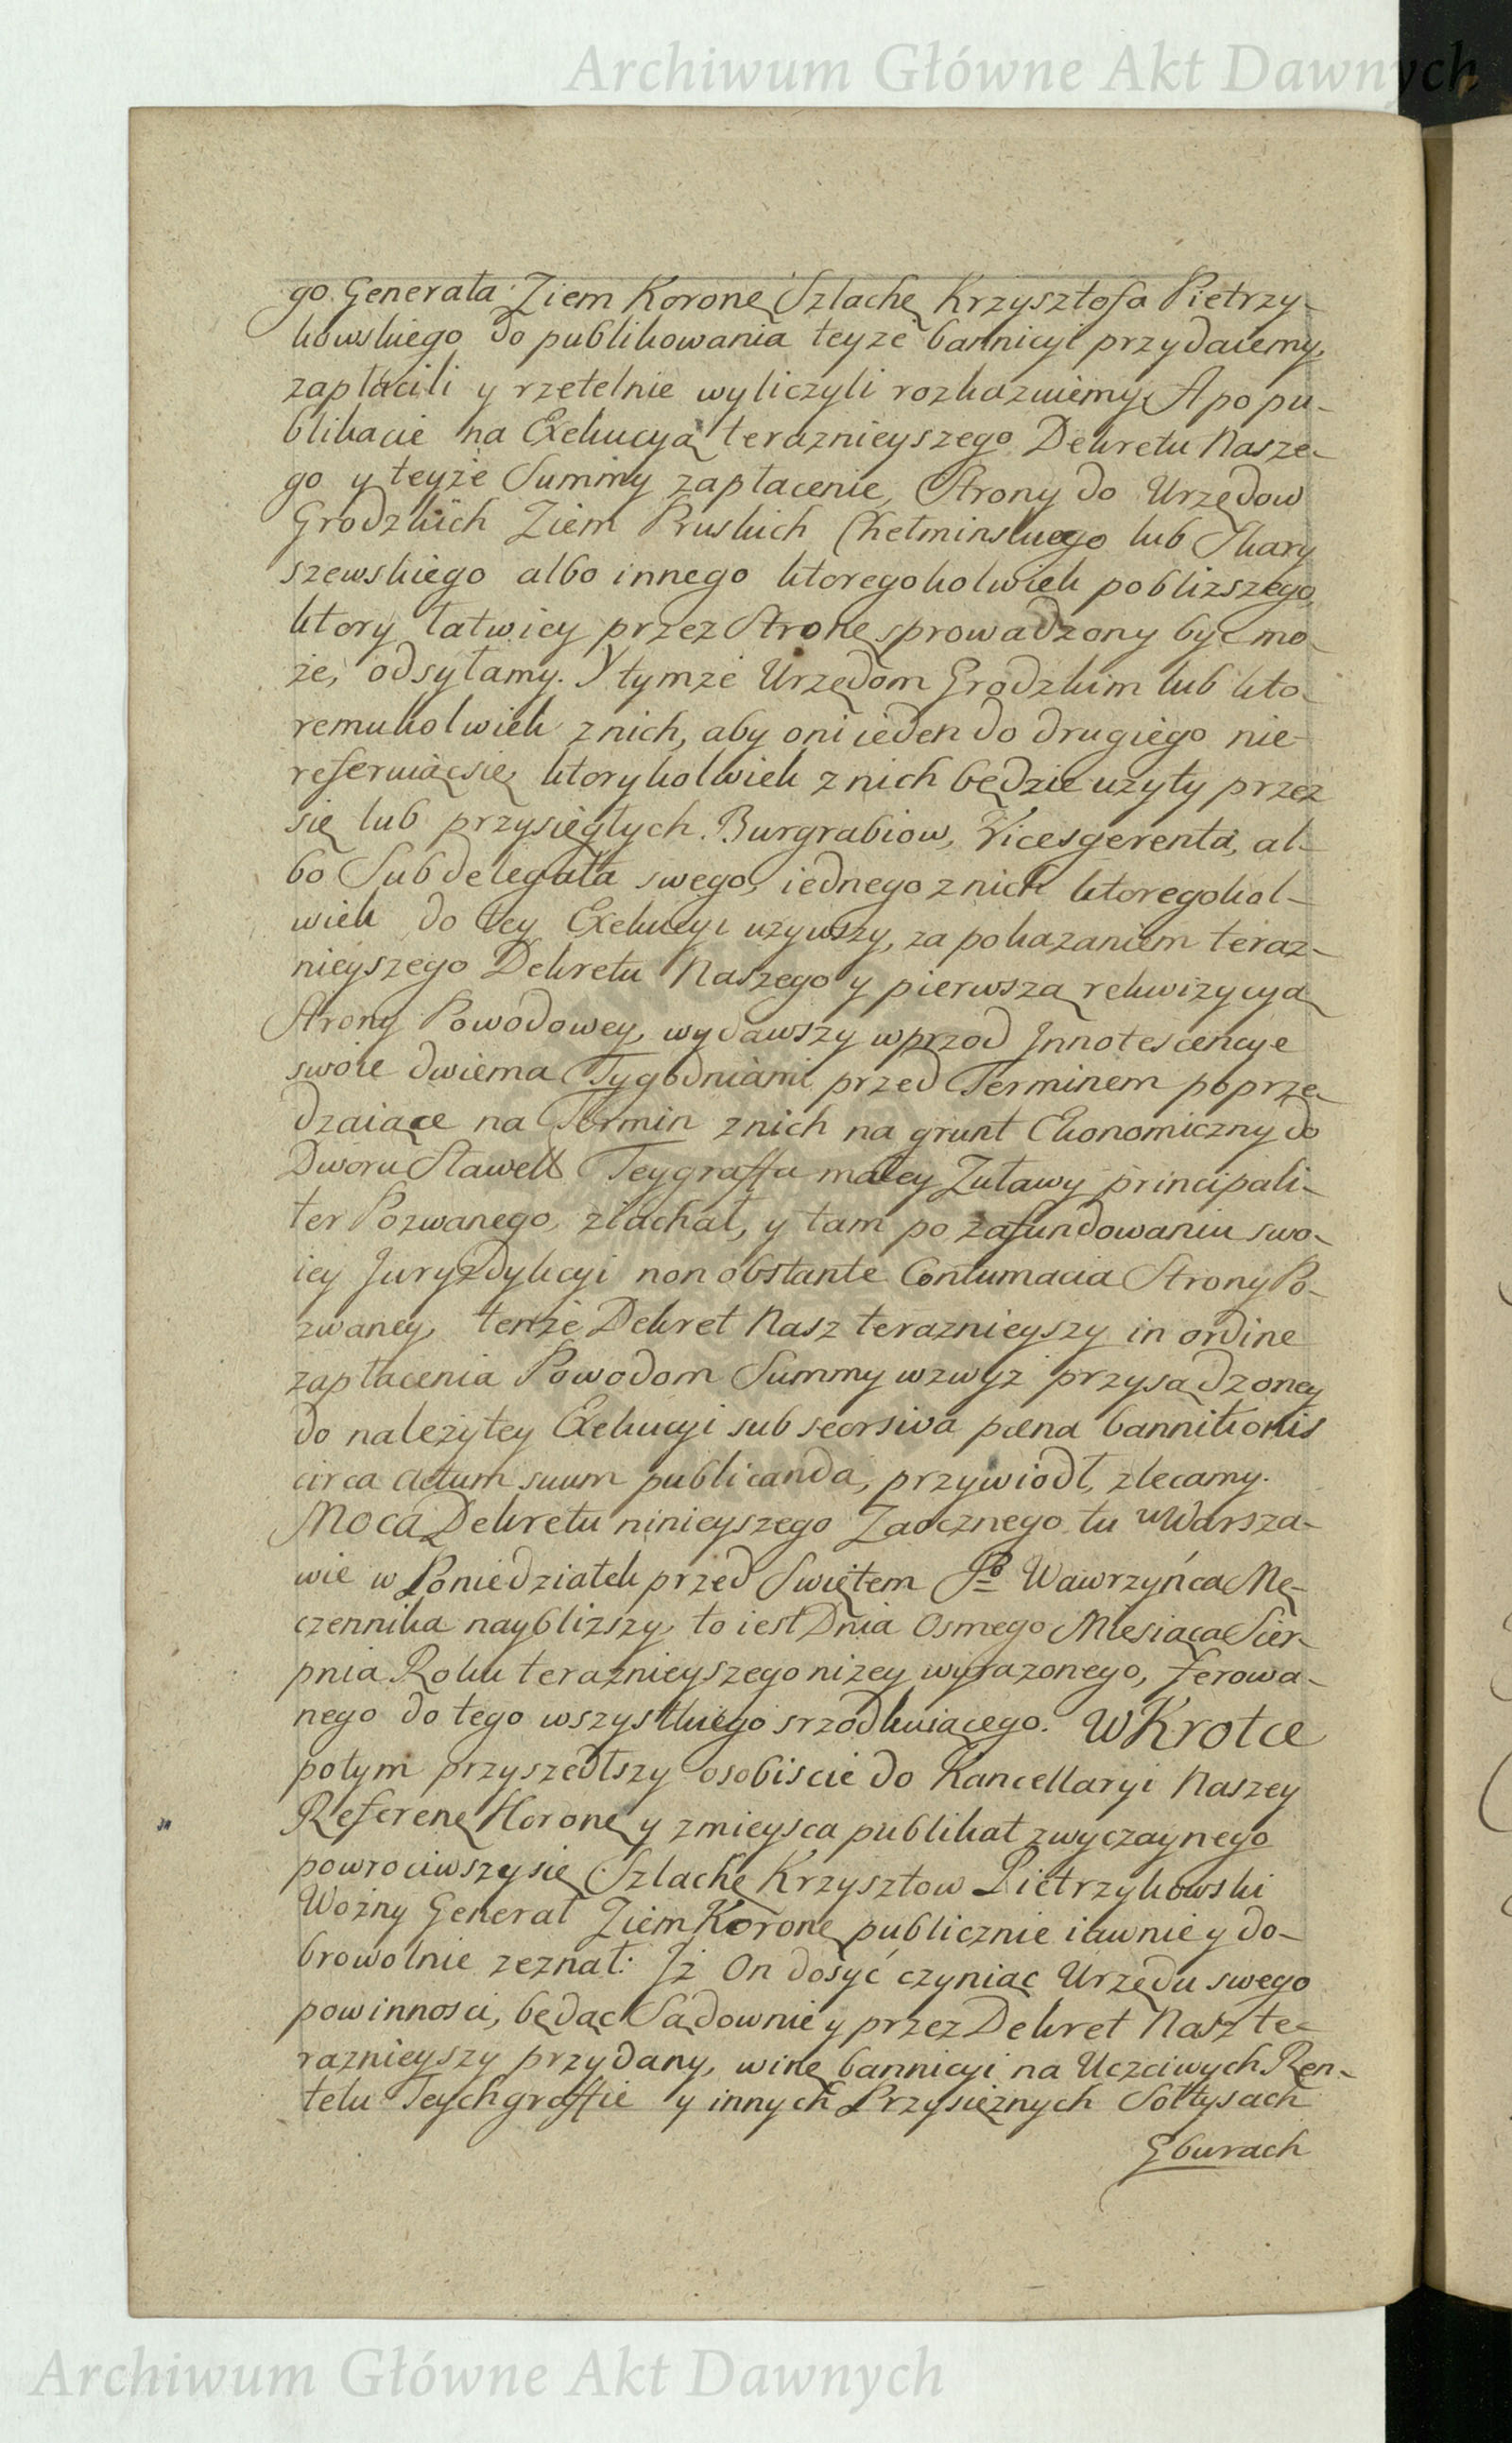 Archiwum Główne Akt Dawnych
go Generała Ziem Koronę Szlachę Krzysztofa Pietrzy-
kowskiego do publikowania teyże bannicyi przydaiemy,
zapłacili y rzetelnie wyliczyli rozkazuiemy. A po pu-
blikacie na Exekucyą teraznieyszego Dekretu Nasze-
go y teyże Summy zapłacenie, Strony do Urzędow
Grodzkich Ziem Pruskich Chełminskiego lub Skary
szewskiego albo innego ktoregokolwiek pobliższego,
ktory łatwiey przez Stronę sprowadzony być mo-
że, odsyłamy. Y tymże Urzędom Grodzkim lub kto-
remukolwiek z nich, aby oni ieden do drugiego nie-
referuiąc się, ktorykolwiek z nich będzie użyty przez
się lub przysięgłych Burgrabiow, Vicesgerenta, al-
bo Subdelegata swego, iednego z nich ktoregokol-
wiek do tey Exekucyi używszy, za pokazaniem teraz-
nieyszego Dekretu Naszego y pierwszą rekwizycyą
Strony Powodowey, wydawszy wprzod Innotescencye
swoie dwiema Tygodniami przed Terminem poprze-
dzaiące na Termin z nich na grunt Ekonomiczny do
Dworu Stawell Teygraffa małey Zuławy principali-
ter Pozwanego, ziachał, y tam po zafundowaniu swo-
iey Juryzdykcyi non obstante Contumacia Strony Po-
zwaney, tenże Dekret Nasz teraznieyszy in ordine
zapłacenia Powodom Summy wzwyż przysądzoney
do należytey Exekucyi sub seorsiva pœna bannitionis
circa actum suum publicanda, przywiodł, zlecamy.
Mocą Dekretu ninieyszego Zaocznego tu w Warsza-
wie w Poniedziałek przed Swiętem Sgo Wawrzyńca Mę-
czennika naybliższy, to iest Dnia Osmego Miesiąca Sier-
pnia Roku teraznieyszego niżey wyrażonego, ferowa-
nego do tego wszystkiego srzodkuiącego. W Krotce
potym przyszedłszy osobiscie do Kancellaryi Naszey
Referenę Koronę y z mieysca publikat zwyczaynego
powrociwszy się Szlachę Krzysztow Pietrzykowski
Woźny Generał Ziem Koronę publicznie iawnie y do-
browolnie zeznał: Iż On dosyć czyniąc Urzędu swego
powinnosci, będąc Sądownie y przez Dekret Nasz te-
raznieyszy przydany, winę bannicyi na Uczciwych Ren-
telu Teychgraffie y innych Przysiężnych Sołtysach
Gburach
Archiwum Główne Akt Dawnych